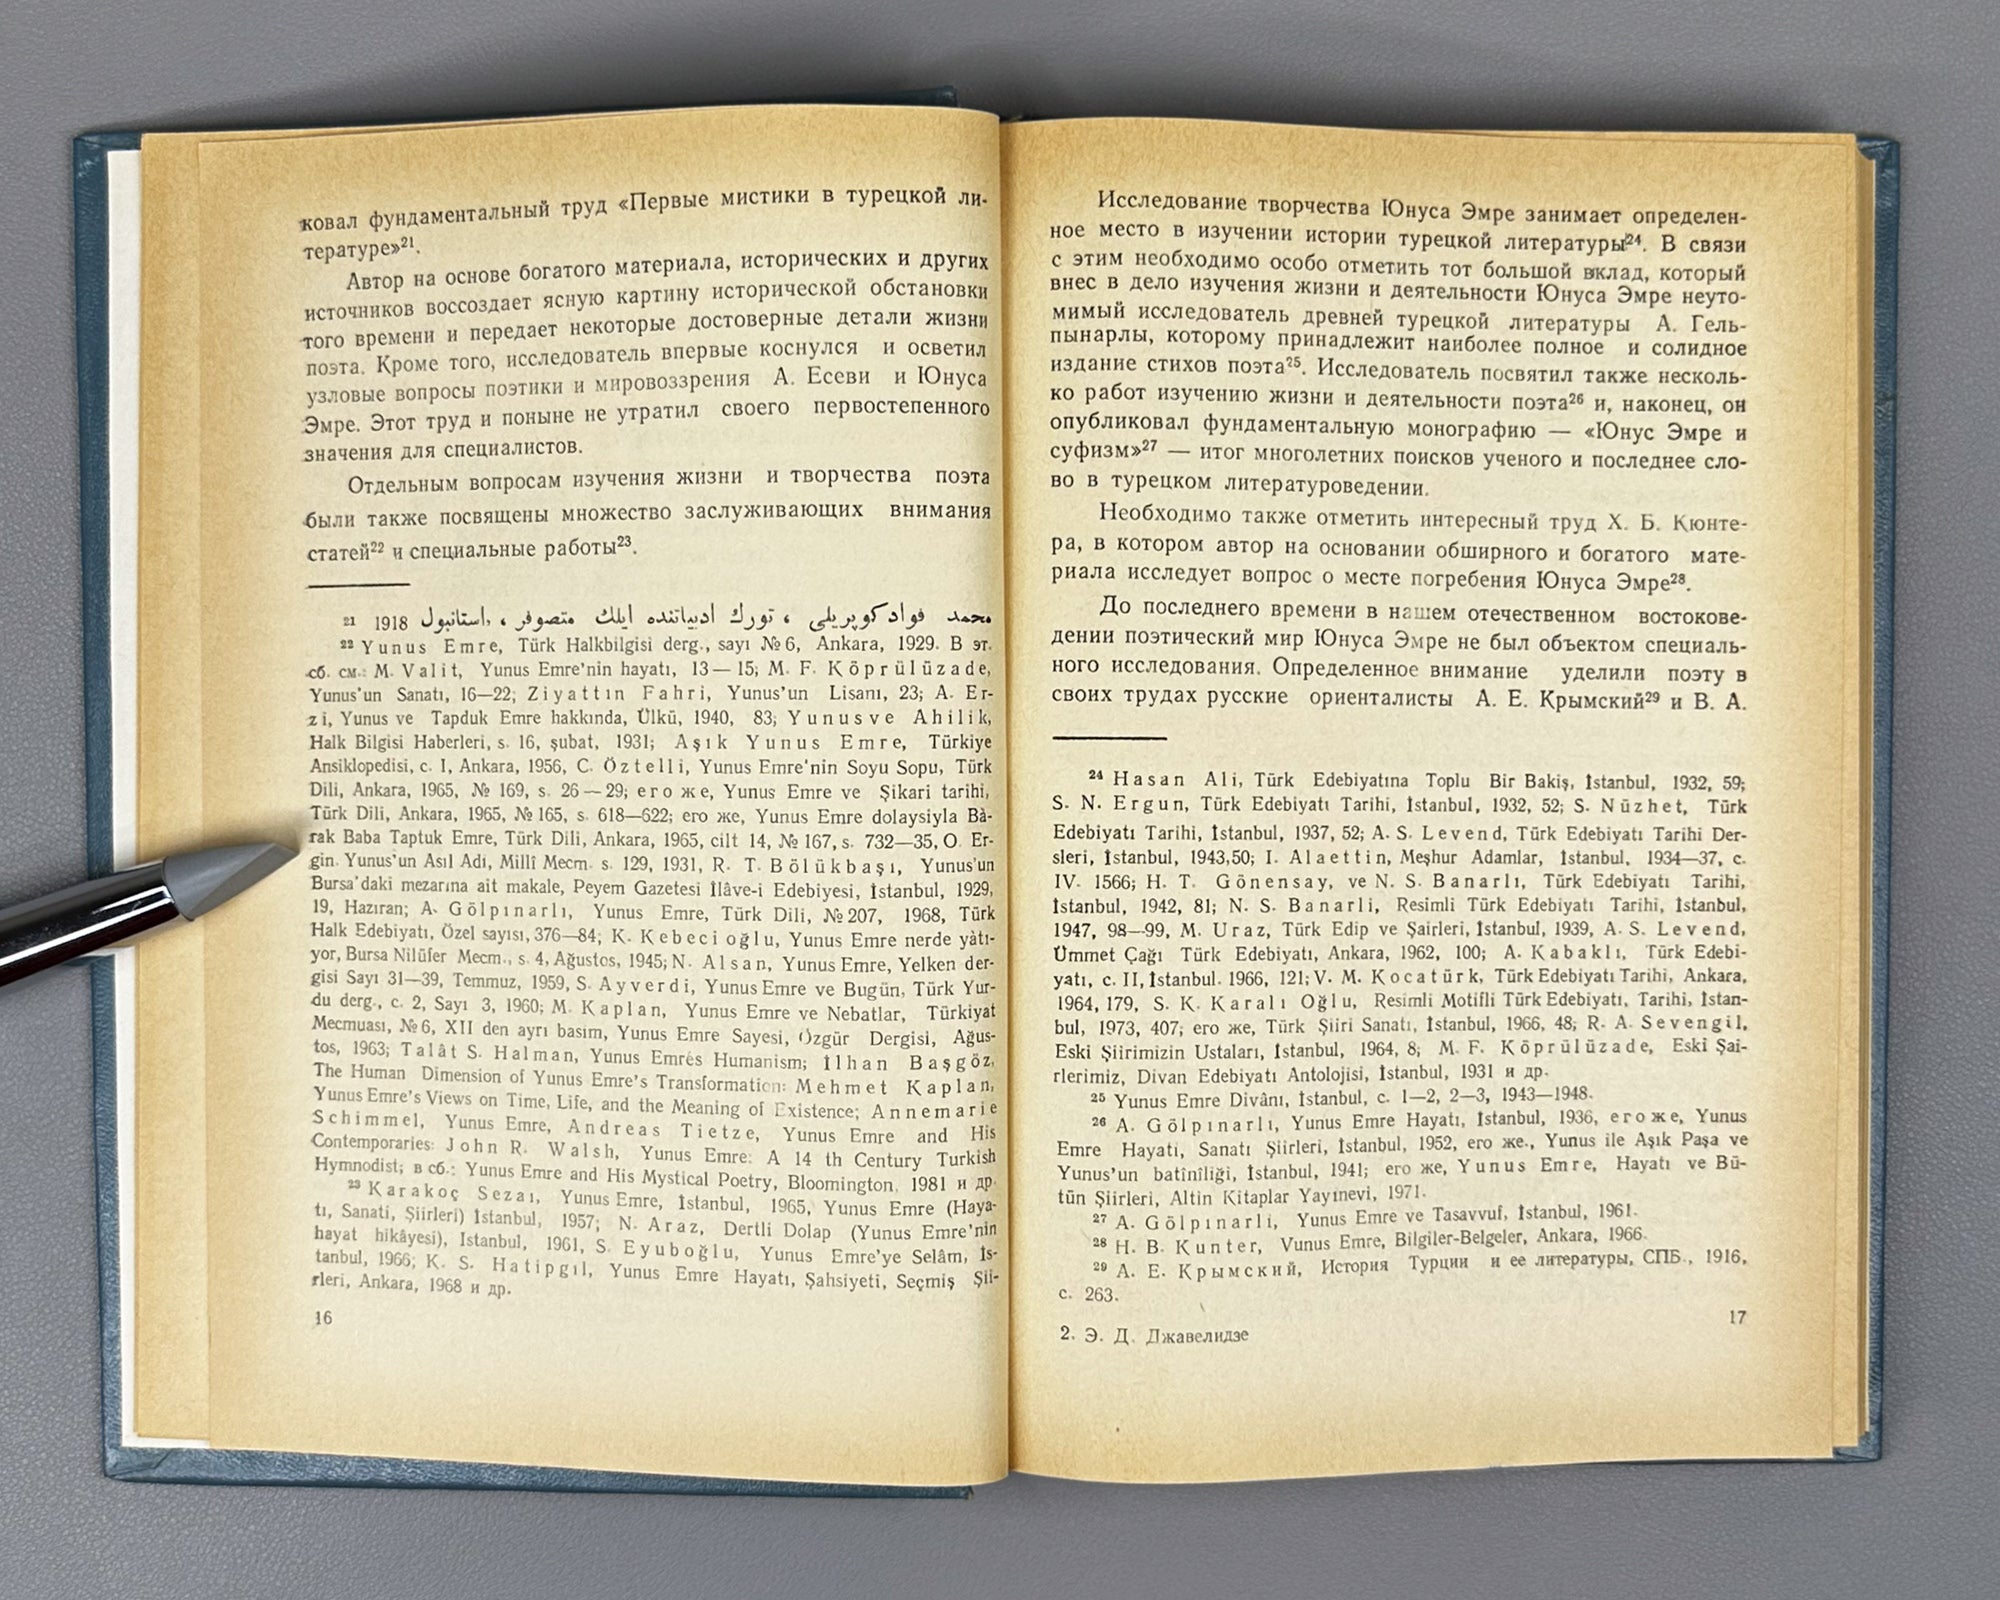 ковал фундаментальный труд «Первые мистики в турецкой ли-
тературе»²¹.
Автор на основе богатого материала, исторических и других
источников воссоздает ясную картину исторической обстановки
того времени и передает некоторые достоверные детали жизни
поэта. Кроме того, исследователь впервые коснулся и осветил
узловые вопросы поэтики и мировоззрения А. Есеви и Юнуса
Эмре. Этот труд и поныне не утратил своего первостепенного
значения для специалистов.
Отдельным вопросам изучения жизни и творчества поэта
были также посвящены множество заслуживающих внимания
статей²² и специальные работы²³.
²¹ 1918 محمد فواد كوپریلی ، تورك ادبیاتنده ایلك متصوفر ، استانبول
²² Yunus Emre, Türk Halkbilgisi derg., sayı №6, Ankara, 1929. В эт.
сб. см.: M. Valit, Yunus Emre'nin hayatı, 13—15; M. F. Köprülüzade,
Yunus'un Sanatı, 16—22; Ziyattın Fahri, Yunus'un Lisanı, 23; A. Er-
zi, Yunus ve Tapduk Emre hakkında, Ülkü, 1940, 83; Yunusve Ahilik,
Halk Bilgisi Haberleri, s. 16, şubat, 1931; Aşık Yunus Emre, Türkiye
Ansiklopedisi, c. I, Ankara, 1956, C. Öztelli, Yunus Emre'nin Soyu Sopu, Türk
Dili, Ankara, 1965, № 169, s. 26—29; его же, Yunus Emre ve Şikari tarihi,
Türk Dili, Ankara, 1965, №165, s. 618—622; его же, Yunus Emre dolaysiyla Bà-
rak Baba Taptuk Emre, Türk Dili, Ankara, 1965, cilt 14, №167, s. 732—35, O. Er-
gin. Yunus'un Asıl Adı, Millî Mecm. s. 129, 1931, R. T. Bölükbaşı, Yunus'un
Bursa'daki mezarına ait makale, Peyem Gazetesi İlâve-i Edebiyesi, İstanbul, 1929,
19, Hazıran; A. Gölpınarlı, Yunus Emre, Türk Dili, №207, 1968, Türk
Halk Edebiyatı, Özel sayısı, 376—84; K. Kebecioğlu, Yunus Emre nerde yàtı-
yor, Bursa Nilüfer Mecm., s. 4, Ağustos, 1945; N. Alsan, Yunus Emre, Yelken der-
gisi Sayı 31—39, Temmuz, 1959, S. Ayverdi, Yunus Emre ve Bugün, Türk Yur-
du derg., c. 2, Sayı 3, 1960; M. Kaplan, Yunus Emre ve Nebatlar, Türkiyat
Mecmuası, №6, XII den ayrı basım, Yunus Emre Sayesi, Özgür Dergisi, Ağus-
tos, 1963; Talât S. Halman, Yunus Emrés Humanism; İlhan Başgöz,
The Human Dimension of Yunus Emre's Transformation: Mehmet Kaplan,
Yunus Emre's Views on Time, Life, and the Meaning of Existence; Annemarie
Schimmel, Yunus Emre, Andreas Tietze, Yunus Emre and His
Contemporaries: John R. Walsh, Yunus Emre: A 14 th Century Turkish
Hymnodist; в сб.: Yunus Emre and His Mystical Poetry, Bloomington, 1981 и др.
²³ Karakoç Sezaı, Yunus Emre, İstanbul, 1965, Yunus Emre (Haya-
tı, Sanati, Şiirleri) İstanbul, 1957; N. Araz, Dertli Dolap (Yunus Emre'nin
hayat hikâyesi), Istanbul, 1961, S. Eyuboğlu, Yunus Emre'ye Selâm, İs-
tanbul, 1966; K. S. Hatipgıl, Yunus Emre Hayatı, Şahsiyeti, Seçmiş Şii-
rleri, Ankara, 1968 и др.
16
Исследование творчества Юнуса Эмре занимает определен-
ное место в изучении истории турецкой литературы²⁴. В связи
с этим необходимо особо отметить тот большой вклад, который
внес в дело изучения жизни и деятельности Юнуса Эмре неуто-
мимый исследователь древней турецкой литературы А. Гель-
пынарлы, которому принадлежит наиболее полное и солидное
издание стихов поэта²⁵. Исследователь посвятил также несколь-
ко работ изучению жизни и деятельности поэта²⁶ и, наконец, он
опубликовал фундаментальную монографию — «Юнус Эмре и
суфизм»²⁷ — итог многолетних поисков ученого и последнее сло-
во в турецком литературоведении.
Необходимо также отметить интересный труд Х. Б. Кюнте-
ра, в котором автор на основании обширного и богатого мате-
риала исследует вопрос о месте погребения Юнуса Эмре²⁸.
До последнего времени в нашем отечественном востокове-
дении поэтический мир Юнуса Эмре не был объектом специаль-
ного исследования. Определенное внимание уделили поэту в
своих трудах русские ориенталисты А. Е. Крымский²⁹ и В. А.
²⁴ Hasan Ali, Türk Edebiyatına Toplu Bir Bakiş, İstanbul, 1932, 59;
S. N. Ergun, Türk Edebiyatı Tarihi, İstanbul, 1932, 52; S. Nüzhet, Türk
Edebiyatı Tarihi, İstanbul, 1937, 52; A. S. Levend, Türk Edebiyatı Tarihi Der-
sleri, İstanbul, 1943,50; I. Alaettin, Meşhur Adamlar, İstanbul, 1934—37, c.
IV. 1566; H. T. Gönensay, ve N. S. Banarlı, Türk Edebiyatı Tarihi,
İstanbul, 1942, 81; N. S. Banarli, Resimli Türk Edebiyatı Tarihi, İstanbul,
1947, 98—99, M. Uraz, Türk Edip ve Şairleri, İstanbul, 1939, A. S. Levend,
Ümmet Çağı Türk Edebiyatı, Ankara, 1962, 100; A. Kabaklı, Türk Edebi-
yatı, c. II, İstanbul. 1966, 121; V. M. Kocatürk, Türk Edebiyatı Tarihi, Ankara,
1964, 179, S. K. Karalı Oğlu, Resimli Motifli Türk Edebiyatı, Tarihi, İstan-
bul, 1973, 407; его же, Türk Şiiri Sanatı, İstanbul, 1966, 48; R. A. Sevengil,
Eski Şiirimizin Ustaları, İstanbul, 1964, 8; M. F. Köprülüzade, Eski Şai-
rlerimiz, Divan Edebiyatı Antolojisi, İstanbul, 1931 и др.
²⁵ Yunus Emre Divânı, İstanbul, c. 1—2, 2—3, 1943—1948.
²⁶ A. Gölpınarlı, Yunus Emre Hayatı, İstanbul, 1936, его же, Yunus
Emre Hayati, Sanatı Şiirleri, İstanbul, 1952, его же., Yunus ile Aşık Paşa ve
Yunus'un batînîliği, İstanbul, 1941; его же, Yunus Emre, Hayatı ve Bü-
tün Şiirleri, Altin Kitaplar Yayınevi, 1971.
²⁷ A. Gölpınarli, Yunus Emre ve Tasavvuf, İstanbul, 1961.
²⁸ H. B. Kunter, Vunus Emre, Bilgiler-Belgeler, Ankara, 1966.
²⁹ А. Е. Крымский, История Турции и ее литературы, СПБ., 1916,
с. 263.
2. Э. Д. Джавелидзе
17